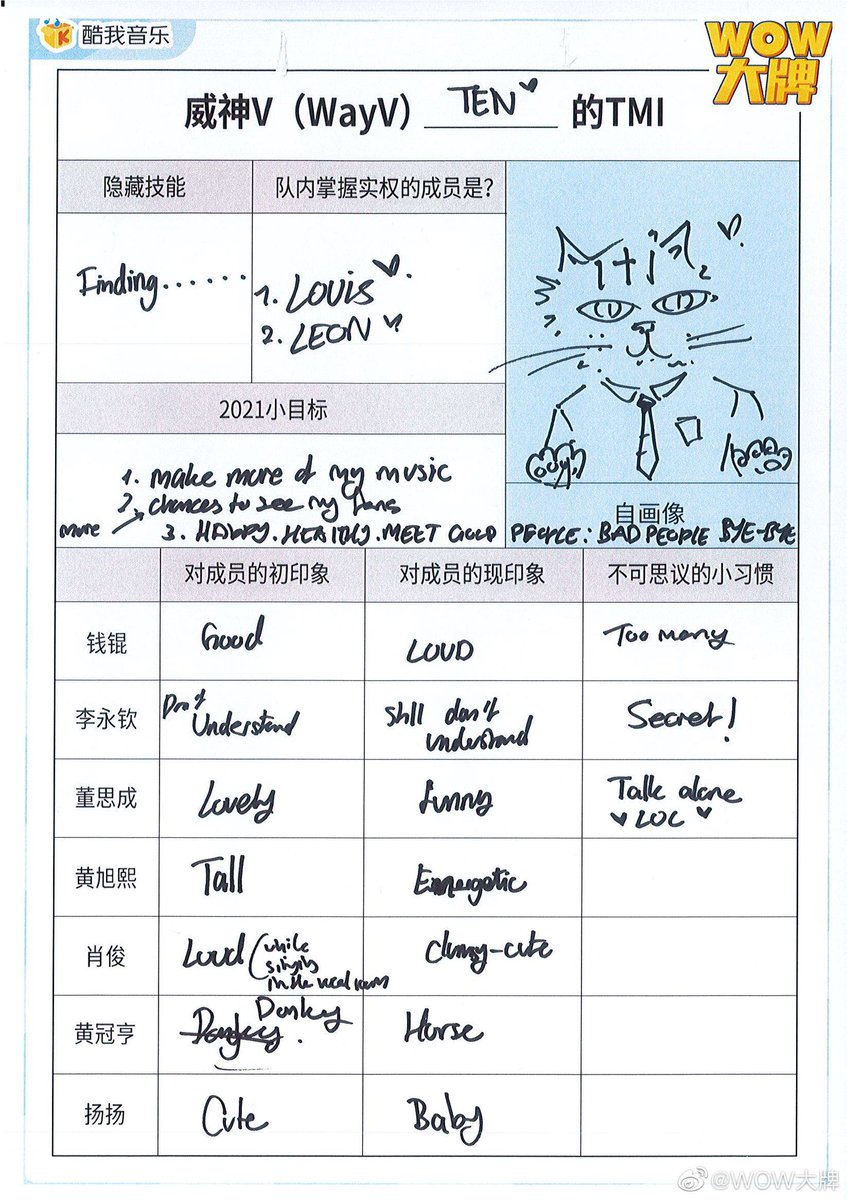 酷我音乐
WOW
大牌
威神V（WayV） TEN 的TMI
隐藏技能
队内掌握实权的成员是?
Finding......
1. LOUIS
2. LEON
2021小目标
1. make more of my music
2. chances to see my fans
more
3. HAPPY. HEALTHY. MEET GOOD PEOPLE: BAD PEOPLE BYE-BYE
自画像
对成员的初印象 对成员的现印象 不可思议的小习惯
钱锟 Good LOUD Too many
李永钦 Don't Understand still don't understand Secret!
董思成 Lovely funny Talk alone
LOL
黄旭熙 Tall Energetic
肖俊 Loud (while clumsy-cute
singing
in the vocal room
黄冠亨 Donkey Horse
扬扬 Cute Baby
@WOW大牌